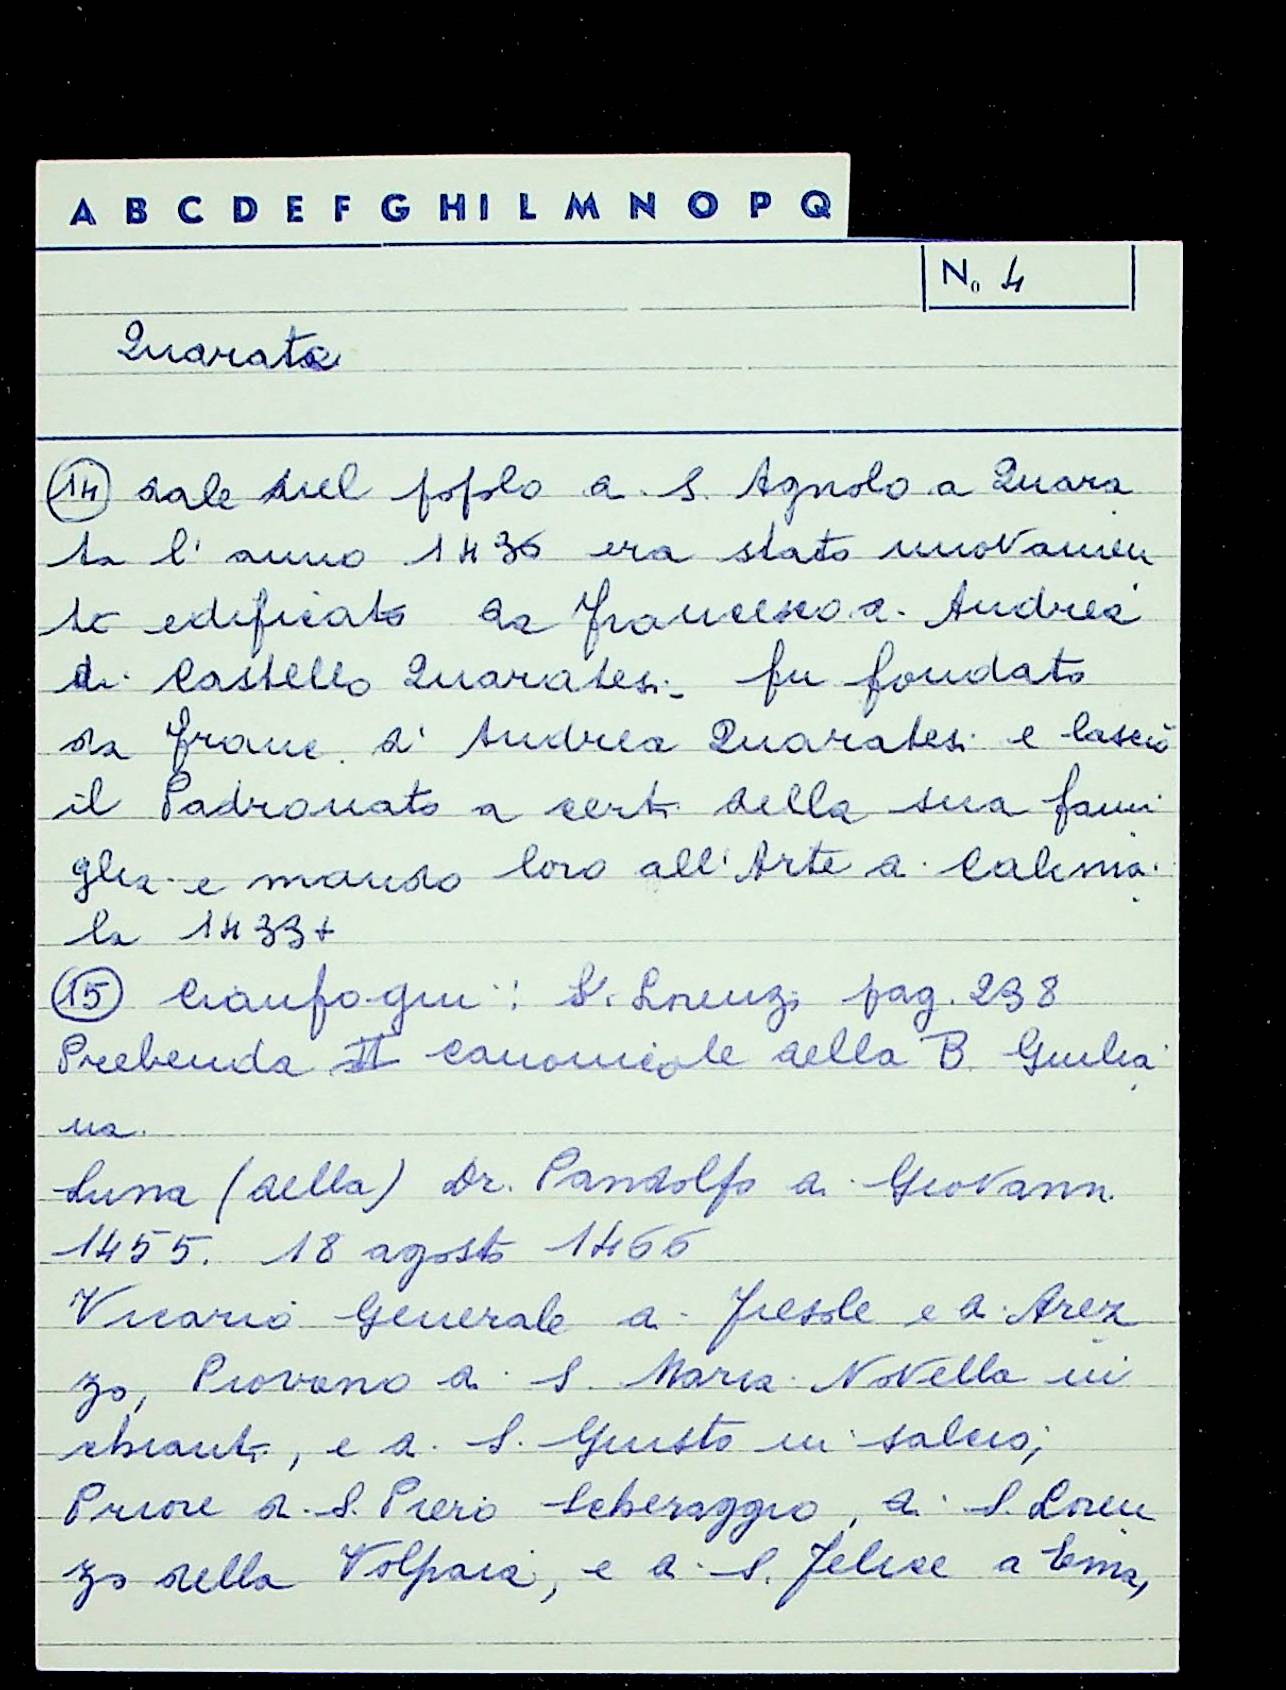 A B C D E F G H I L M N O P Q
No 4
Quarata
14 dale del popolo di S. Agnolo a Quara
ta l'anno 1436 era stato nuovamen
te edificato da Francesco d. Andrea
di Castello Quaratesi. fu fondato
da Franc. d'Andrea Quaratesi e lasciò
il Padronato a certi della sua fami
glia e mando loro all'Arte di Calima
la 1433+
15 Cianfogni: S. Lorenzo pag. 238
Prebenda II canonicale della B. Giulia
na.
Luna (della) Dr. Pandolfo di Giovanni
1455. 18 agosto 1466
Vicario Generale di Fiesole e di Arez
zo, Piovano di S. Maria Novella in
chianti, e di S. Giusto in salcio;
Priore di S. Piero Scheraggio, di S. Loren
zo della Volpaia, e di S. Felice a Ema,